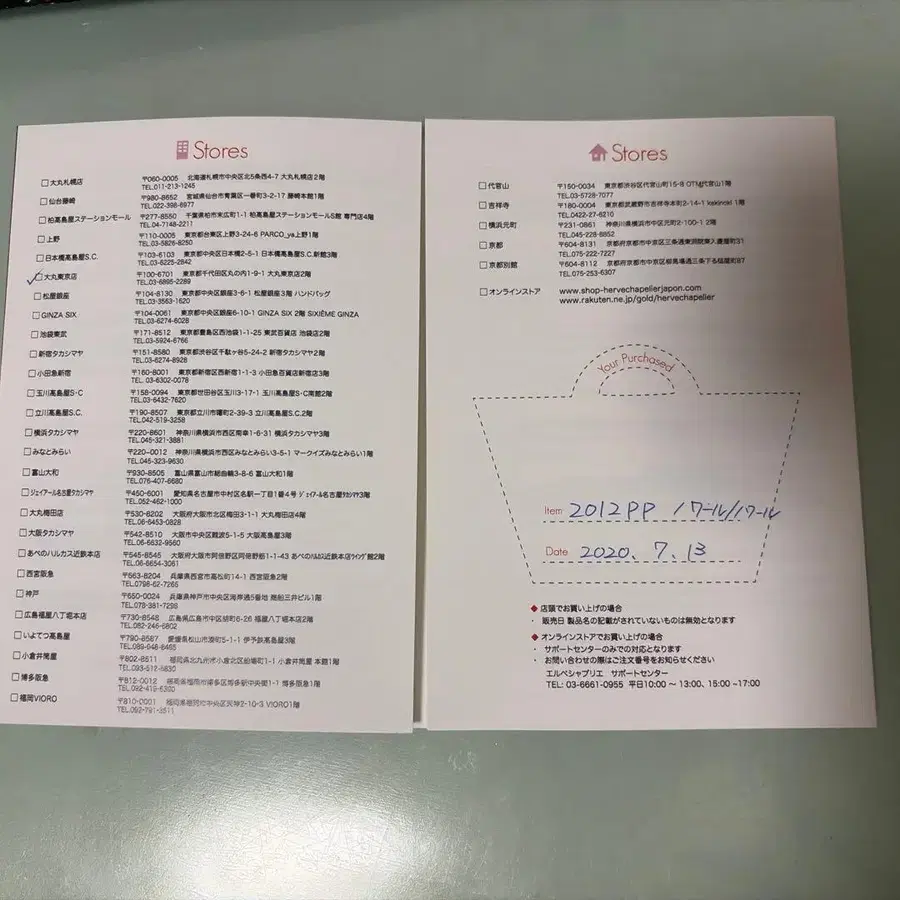 Stores
□大丸札幌店 〒060-0005 北海道札幌市中央区北5条西4-7 大丸札幌店2階
TEL.011-213-1245
□仙台藤崎 〒980-8652 宮城県仙台市青葉区一番町3-2-17 藤崎本館1階
TEL.022-398-6977
□柏高島屋ステーションモール 〒277-8550 千葉県柏市末広町1-1 柏高島屋ステーションモールS館 専門店4階
TEL.04-7148-2211
□上野 〒110-0005 東京都台東区上野3-24-6 PARCO_ya上野1階
TEL.03-5826-8250
□日本橋高島屋S.C. 〒103-6103 東京都中央区日本橋2-5-1 日本橋高島屋S.C.新館3階
TEL.03-6225-2842
✓□大丸東京店 〒100-6701 東京都千代田区丸の内1-9-1 大丸東京店2階
TEL.03-6895-2289
□松屋銀座 〒104-8130 東京都中央区銀座3-6-1 松屋銀座3階 ハンドバッグ
TEL.03-3563-1620
□GINZA SIX 〒104-0061 東京都中央区銀座6-10-1 GINZA SIX 2階 SIXIÈME GINZA
TEL.03-6274-6028
□池袋東武 〒171-8512 東京都豊島区西池袋1-1-25 東武百貨店 池袋店2階
TEL.03-5924-6766
□新宿タカシマヤ 〒151-8580 東京都渋谷区千駄ヶ谷5-24-2 新宿タカシマヤ2階
TEL.03-6274-8928
□小田急新宿 〒160-8001 東京都新宿区西新宿1-1-3 小田急百貨店新宿店3階
TEL.03-6302-0078
□玉川高島屋S・C 〒158-0094 東京都世田谷区玉川3-17-1 玉川高島屋S・C南館2階
TEL.03-6432-7620
□立川高島屋S.C. 〒190-8507 東京都立川市曙町2-39-3 立川高島屋S.C.2階
TEL.042-519-3258
□横浜タカシマヤ 〒220-8601 神奈川県横浜市西区南幸1-6-31 横浜タカシマヤ3階
TEL.045-321-3881
□みなとみらい 〒220-0012 神奈川県横浜市西区みなとみらい3-5-1 マークイズみなとみらい1階
TEL.045-323-9630
□富山大和 〒930-8505 富山県富山市総曲輪3-8-6 富山大和1階
TEL.076-407-6680
□ジェイアール名古屋タカシマヤ 〒450-6001 愛知県名古屋市中村区名駅一丁目1番4号 ジェイアール名古屋タカシマヤ3階
TEL.052-462-1000
□大丸梅田店 〒530-8202 大阪府大阪市北区梅田3-1-1 大丸梅田店4階
TEL.06-6453-0828
□大阪タカシマヤ 〒542-8510 大阪市中央区難波5-1-5 大阪高島屋3階
TEL.06-6632-9560
□あべのハルカス近鉄本店 〒545-8545 大阪府大阪市阿倍野区阿倍野筋1-1-43 あべのハルカス近鉄本店ウイング館2階
TEL.06-6654-3061
□西宮阪急 〒663-8204 兵庫県西宮市高松町14-1 西宮阪急2階
TEL.0798-62-7265
□神戸 〒650-0024 兵庫県神戸市中央区海岸通5番地 商船三井ビル1階
TEL.078-381-7298
□広島福屋八丁堀本店 〒730-8548 広島県広島市中区胡町6-26 福屋八丁堀本店2階
TEL.082-246-6802
□いよてつ高島屋 〒790-8587 愛媛県松山市湊町5-1-1 伊予鉄高島屋3階
TEL.089-948-8465
□小倉井筒屋 〒802-8511 福岡県北九州市小倉北区船場町1-1 小倉井筒屋 本館1階
TEL.093-512-5830
□博多阪急 〒812-0012 福岡県福岡市博多区博多駅中央街1-1 博多阪急1階
TEL.092-419-5380
□福岡VIORO 〒810-0001 福岡県福岡市中央区天神2-10-3 VIORO1階
TEL.092-791-3511
Stores
□代官山 〒150-0034 東京都渋谷区代官山町15-8 OTM代官山1階
TEL.03-5728-7077
□吉祥寺 〒180-0004 東京都武蔵野市吉祥寺本町2-14-1 kekinoki 1階
TEL.0422-27-6210
□横浜元町 〒231-0861 神奈川県横浜市中区元町2-100-1 2階
TEL.045-228-8852
□京都 〒604-8131 京都府京都市中京区三条通東洞院東入菱屋町31
TEL.075-222-7227
□京都別館 〒604-8112 京都府京都市中京区柳馬場通三条下る槌屋町87
TEL.075-253-6307
□オンラインストア www.shop-hervechapelierjapon.com
www.rakuten.ne.jp/gold/hervechapelier
Your Purchased
Item 2012PP ノワール/ノワール
Date 2020. 7. 13
◆店頭でお買い上げの場合
・ 販売日 製品名の記載がされていないものは無効となります
◆オンラインストアでお買い上げの場合
・ サポートセンターのみでの対応となります
・ お問い合わせの際はご注文番号をお知らせください
エルベシャプリエ サポートセンター
TEL: 03-6661-0955 平日10:00 ～ 13:00、15:00 ~17:00